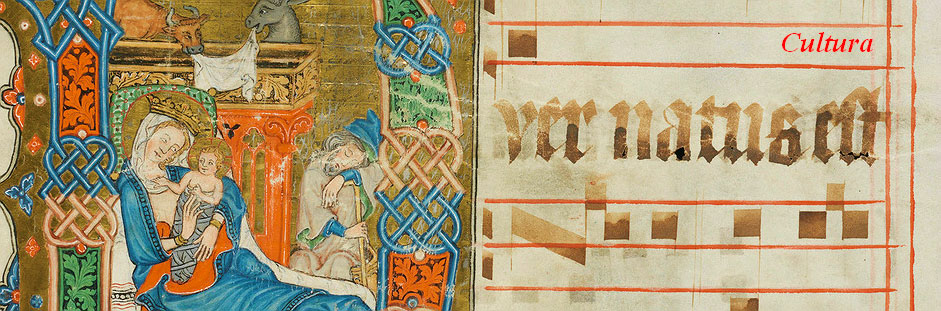 Cultura
uer natus est